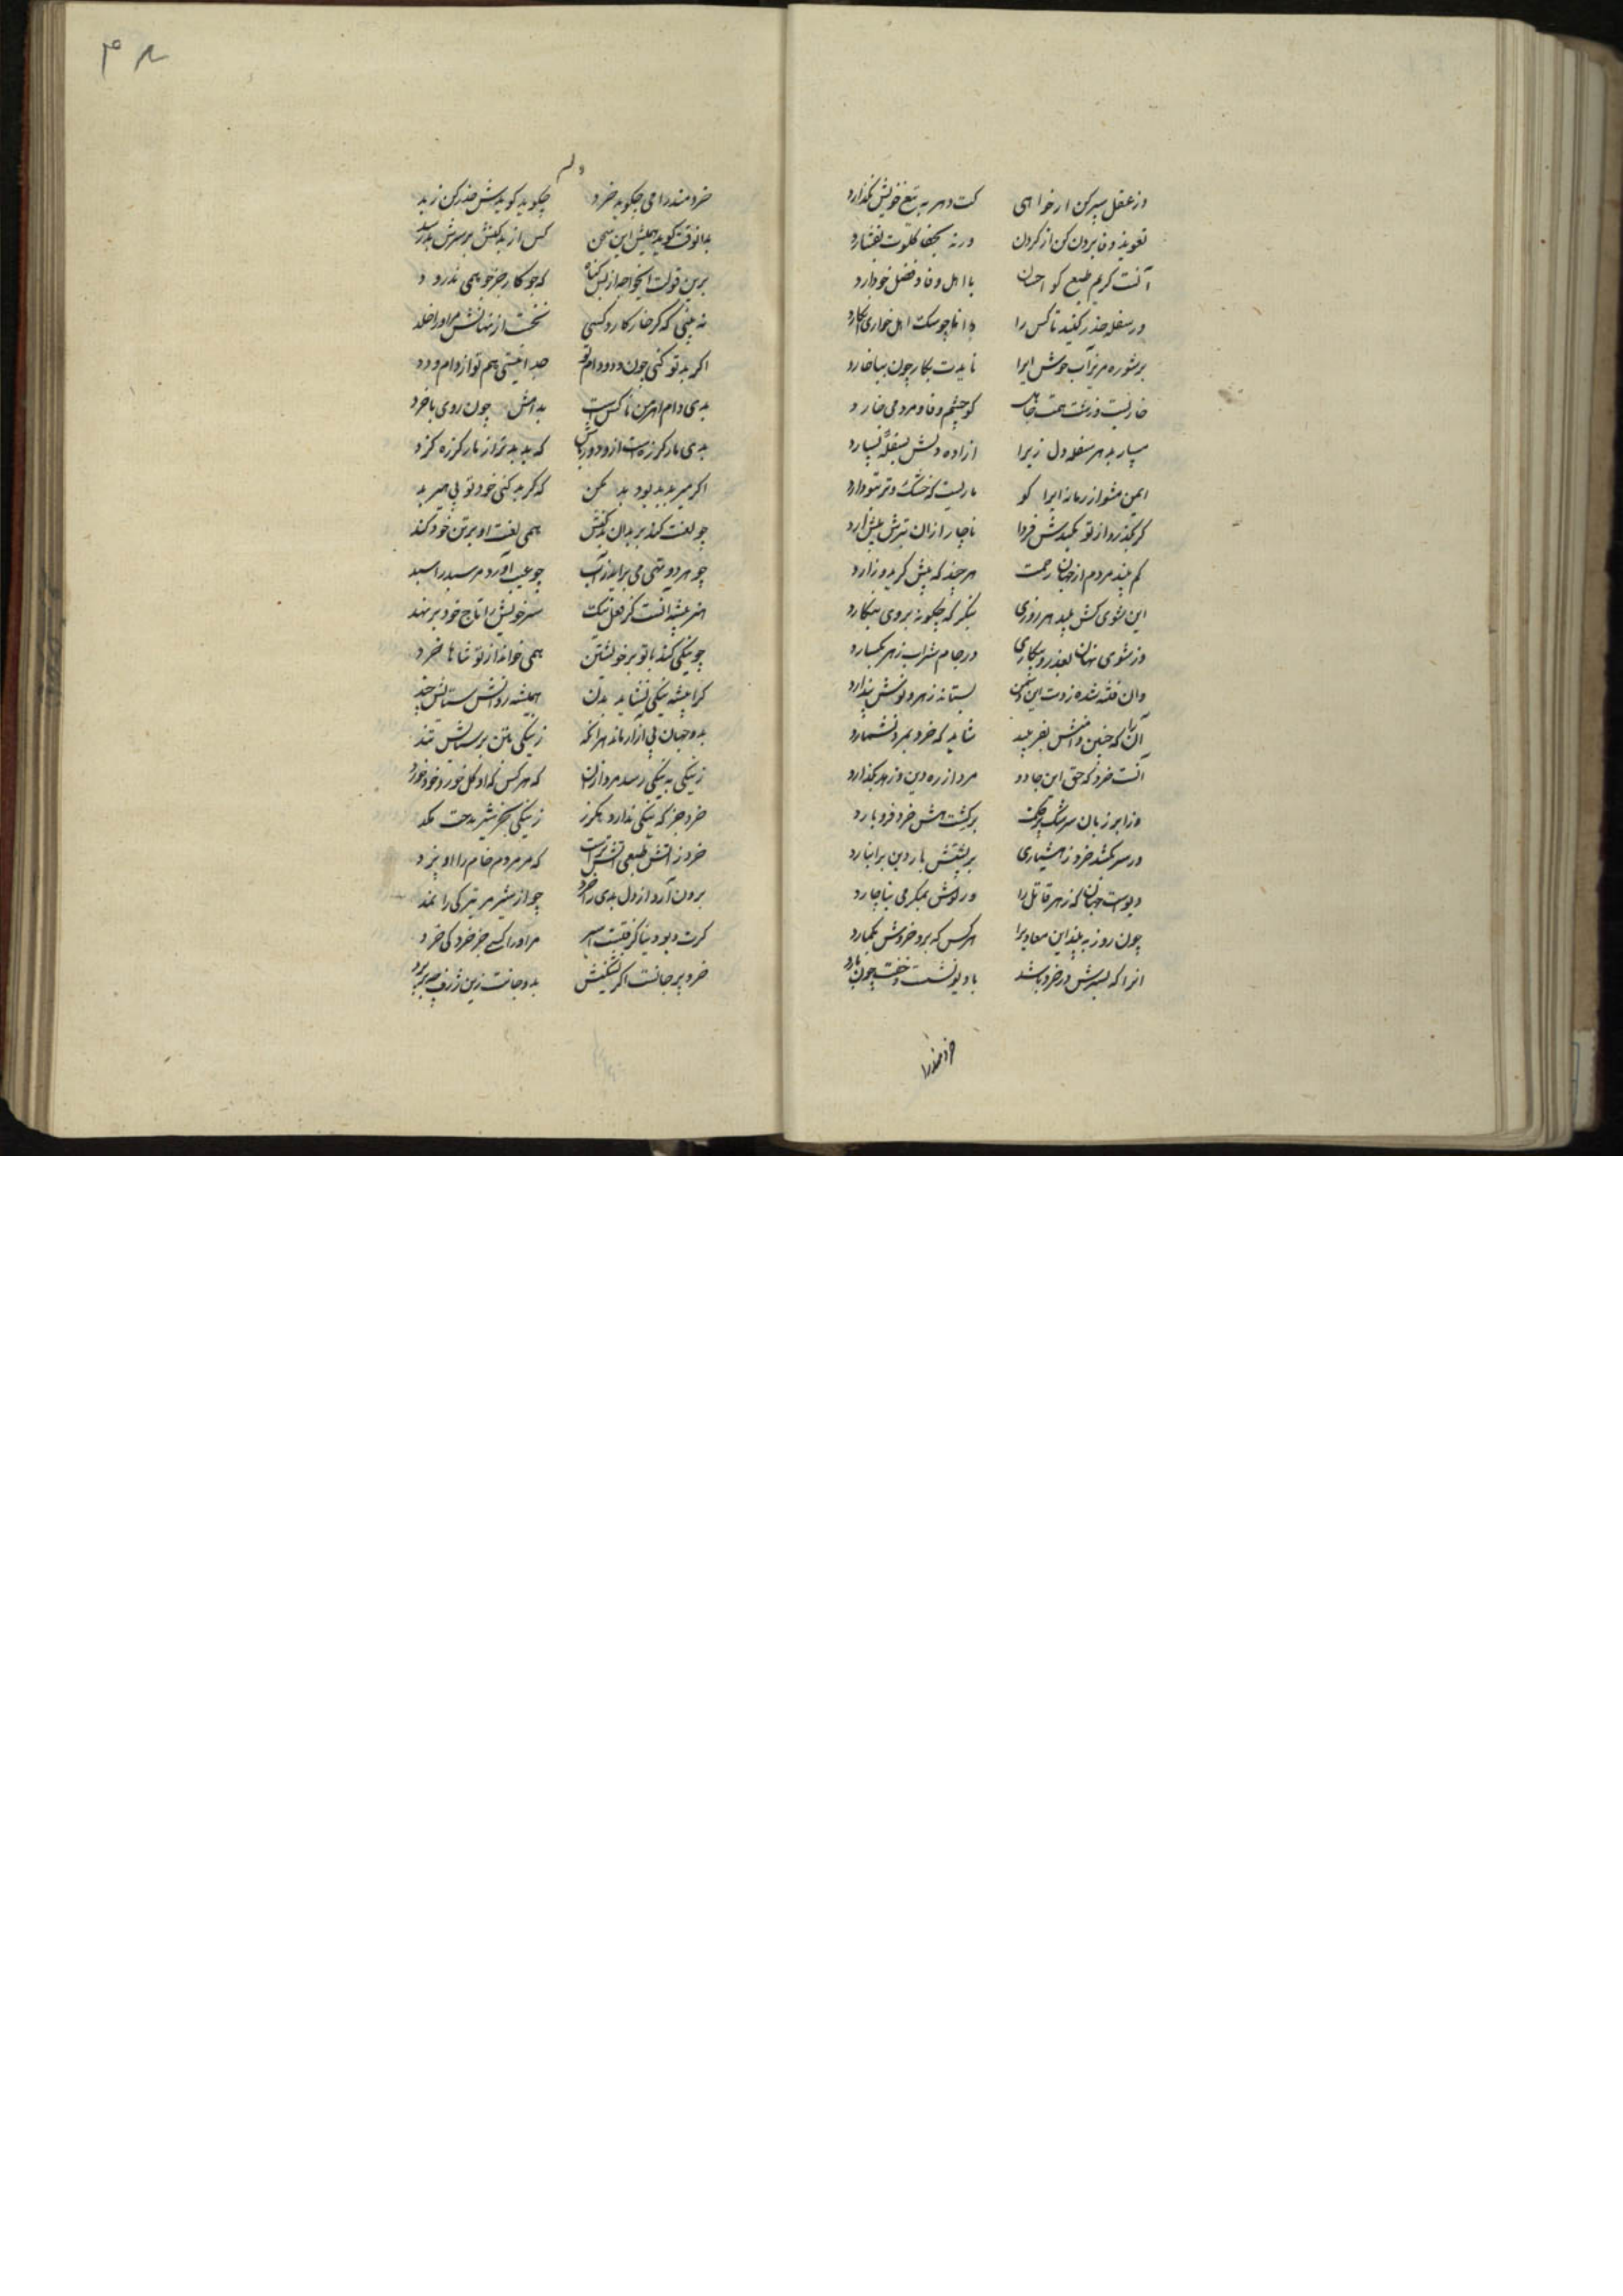 وز عقل سپر کن ار خواهی کت دهر به تیغ خویش نگذارد
تعویذ وفا برون کن از گردن ورنه بجفا گلوت بفشارد
آنست کریم طبع کو احسان با اهل وفا و فضل خود دارد
ور سفله حذر کنید تا کس را دانا چو سگ اهل خواری انگارد
بر شوره مریز آب خوش ایرا نایدت بکار چون بیاغارد
خاریست درشت همت جاهل کو چشم وفا و مردمی خارد
مسپار به هر سفله دل زیرا ازاده دلش بسفله نسپارد
ایمن مشو از زمانه ایرا کو ماریست که خشک و تر بیوبارد
گر بگذرد از تو یک بدش فردا ناچار ازان بترش پیش آرد
کم بیند مردم از جهان رحمت هر چند که پیش گرید و زارد
این شوی کش پلید هر روزی بنگر که چگونه روی بنگارد
وز شوی نهان بغدر و مکاری در جام شراب زهر بگسارد
وان فتنه شده ز دست این دشمن بستاند زهر و نوش پندارد
آن را که چنین زنش بفریبد شاید که خرد بمرد نشمارد
آنست خرد که حق این جادو مرد از ره دین و زهد بگذارد
وز ابر زبان سرشک حکمت بر کشت هش خرد فرو بارد
ور سر بکشد خرد ز هشیاری بر پشتش بار دین برانبارد
دیوست جهان که زهر قاتل را در نوش بمکر می بیاچارد
چون روز به بیند این معاویرا هر کس که برد خروش بگمارد
انرا که بسرش در خرد باشد با دیو نشست و خفت چون یارد
خردمندرا
۴۸
وله
خردمند را می چگوید خرد چگوید گویدش حذر کن ز بد
بدانوقت گوید همیش این سخن کس از بد کنش بر سرش بد رسد
برین قولت ایخواجه از بس گناه که جو کار جز جو همی ندرود
نه بینی که گر خار کارد کسی نخست از نهانش مراورا خلد
اگر بد تو کنی چون دد و دام تو جدا نیستی هم تو از دام و دد
بدی دام اهرمن ناکس است بدامش چون روی با خرد
بدی مار گرزه است ازو دور باش که بد بدتر از مار گرزه گزد
اگر میر بد بد بود بد مکن که گر بد کنی خود تو یی میر بد
چو لعنت کند بر بدان بد کنش همی لعنت او بر تن خود کند
چو هر دو تهی می براید ز آب چو عیب آورد مر سبد را سبد
اثر بیشه آنست کز فعل نیک سر خویش را تاج خود بر نهد
چو نیکی کند با تو بر خویشتن همی خواند از تو ثناها خرد
کرا پیشه نیکی نشاید بدان همیشه روانش ستایش چند
بدو جهان بی آزار ماند هرآنکه ز نیکی بتن بر ستایش تند
ز نیکی به نیکی رسد مرد ازان که هر کس که او گل خورد خود خورد
خرد جز که نیکی ندارد هگرز ز نیکی بجز شیر مدحت مکد
خرد ز اتش طبعی اتش‌ترست که مر مردم خام را او پزد
برون آرد از دل بدی را خرد چو از شیر مر تیرگی را نمد
گرت دیو دنیا گرفتست اسیر مر او را کسی جز خرد کی خرد
خرد بر جانست اگر نشکنیش بدو جانت زین ژرف چه بر پرد